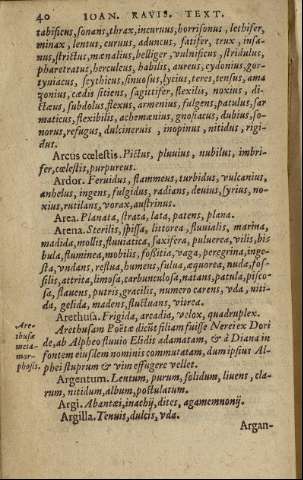 40 IOAN. RAVIS. TEXT.
tabificus, sonans, thrax, incuruus, horrisonus, lethifer,
minax, lentus, curuus, aduncus, fatifer, trux, insa-
nus, strictus, mænalius, belliger, vulnificus, stridulus,
pharetratus, herculeus, habilis, aureus, cydonius, gor-
tyniacus, scythicus, sinuosus, lycius, teres, tensus, ama
zonius, cædis sitiens, sagittifer, flexilis, noxius, di-
ctæus, subdolus, flexus, armenius, fulgens, patulus, sar
maticus, flexibilis, achemænius, gnosiacus, dubius, so-
norus, refugus, dulcineruis, inopinus, nitidus, rigi-
dus.
Arcus cœlestis. Pictus, pluuius, nubilus, imbri-
fer, cœlestis, purpureus.
Ardor. Feruidus, flammeus, turbidus, vulcanius,
anhelus, ingens, fulgidus, radians, deuius, syrius, no-
xius, rutilans, vorax, austrinus.
Area. Planata, strata, lata, patens, plana.
Arena. Sterilis, spissa, litorea, fluuialis, marina,
madida, mollis, fluuiatica, saxifera, puluerea, vilis, bi
bula, fluminea, mobilis, fossitia, vaga, peregrina, inge-
sta, vndans, restua, humens, fulua, æquorea, nuda, fos-
silis, attrita, limosa, carbunculosa, natans, patula, pisco-
sa, flauens, putris, gracilis, numero carens, vda, niti-
da, gelida, madens, fluctuans, vitrea.
Arethusa. Frigida, arcadia, velox, quadruplex.
Are-
thusæ
meta-
mor-
phosis.
Arethusam Poëtæ dicũt filiam fuisse Nerei ex Dori
de, ab Alpheo fluuio Elidis adamatam, & à Diana in
fontem eiusdem nominis commutatam, dum ipsius Al-
phei stuprum & vim effugere vellet.
Argentum. Lentum, purum, solidum, liuent, cla-
rum, nitidum, album, postulatum.
Argi. Abantæi, inachij, dites, agamemnonij.
Argilla. Tenuis, dulcis, vda.
Argan-